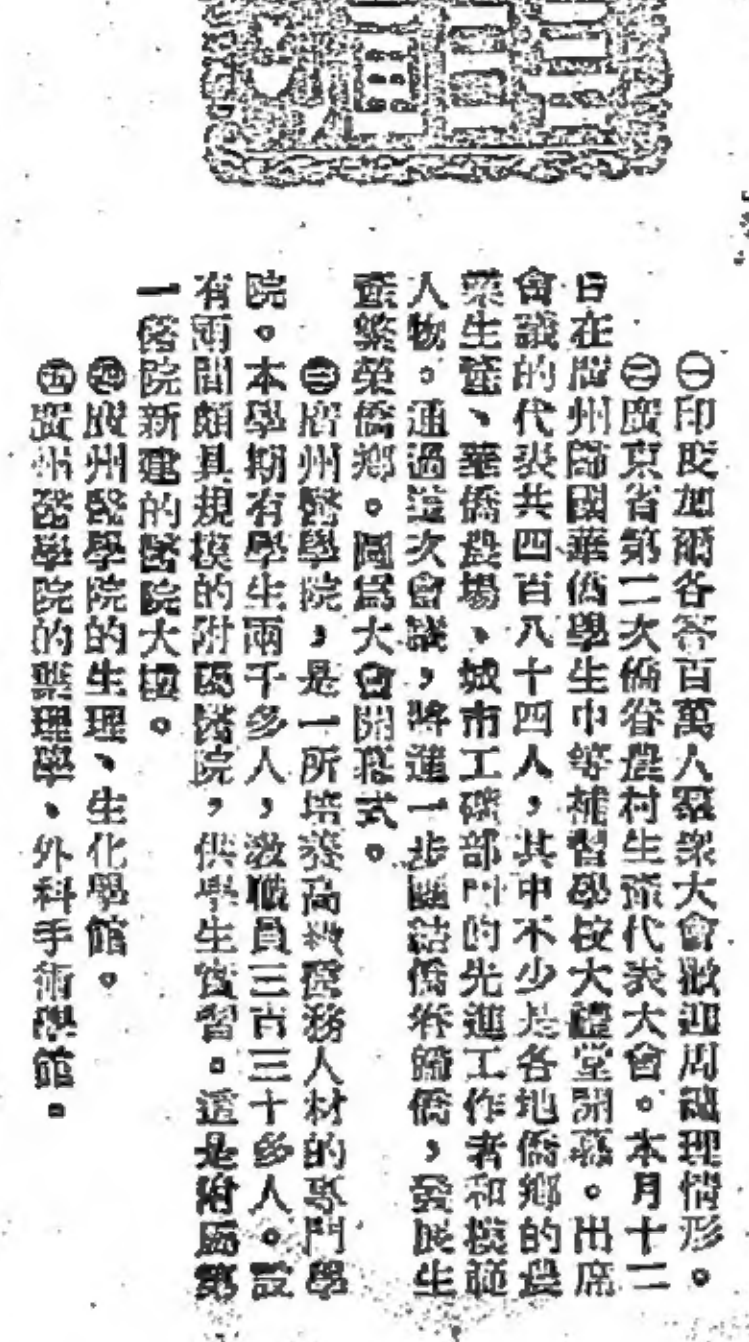 ㊀印度加爾各答百萬人羣衆大會歡迎周總理情形。
㊁廣東省第二次僑眷農村生產代表大會。本月十二
日在廣州歸國華僑學生中等補習學校大禮堂開幕。出席
會議的代表共四百八十四人，其中不少是各地僑鄉的農
業生產、華僑農場、城市工礦部門的先進工作者和模範
人物。通過這次會議，將進一步團結僑眷歸僑，發展生
產繁榮僑鄉。圖爲大會開幕式。
㊂廣州醫學院，是一所培養高級醫務人材的專門學
院。本學期有學生兩千多人，敎職員三百三十多人。設
有兩間頗具規模的附屬醫院，供學生實習。這是附屬第
一醫院新建的醫院大樓。
㊃廣州醫學院的生理、生化學館。
㊄廣州醫學院的藥理學、外科手術學館。